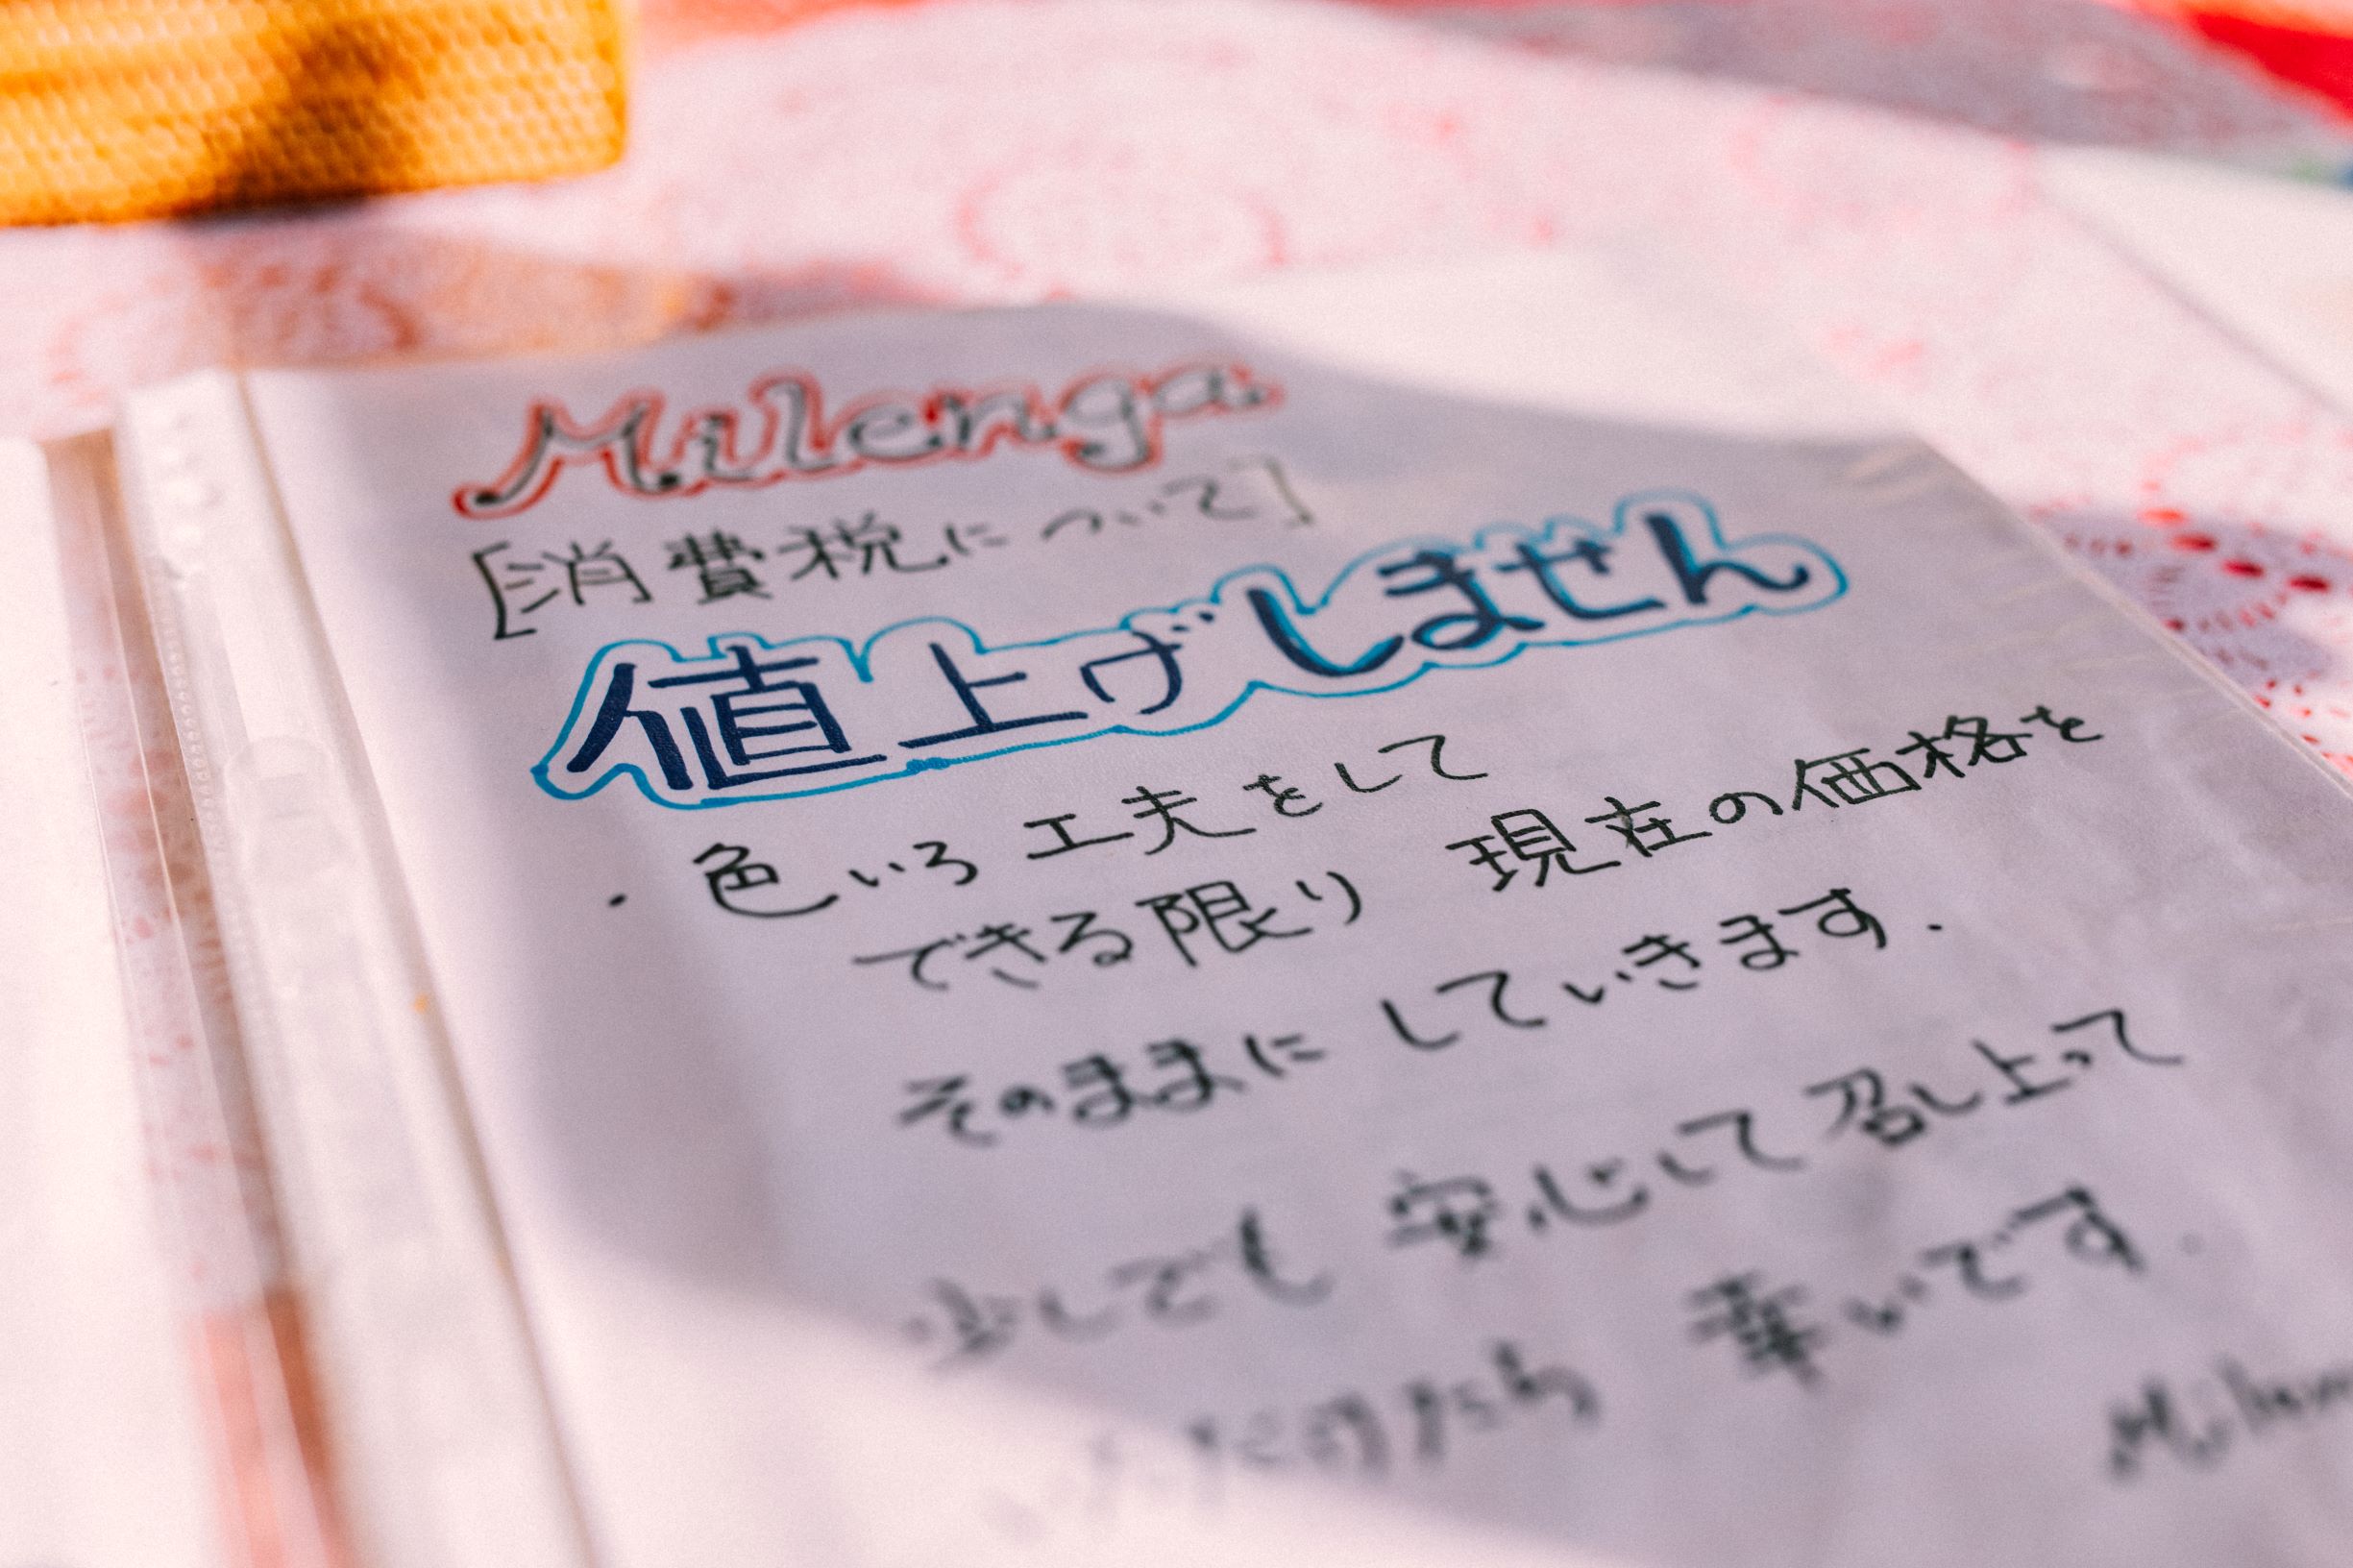 Milenga
[消費税について]
値上げしません
・色いろ 工夫をして
できる限り 現在の価格を
そのままに していきます.
少しでも 安心して 召し上って
いただけたら 幸いです.